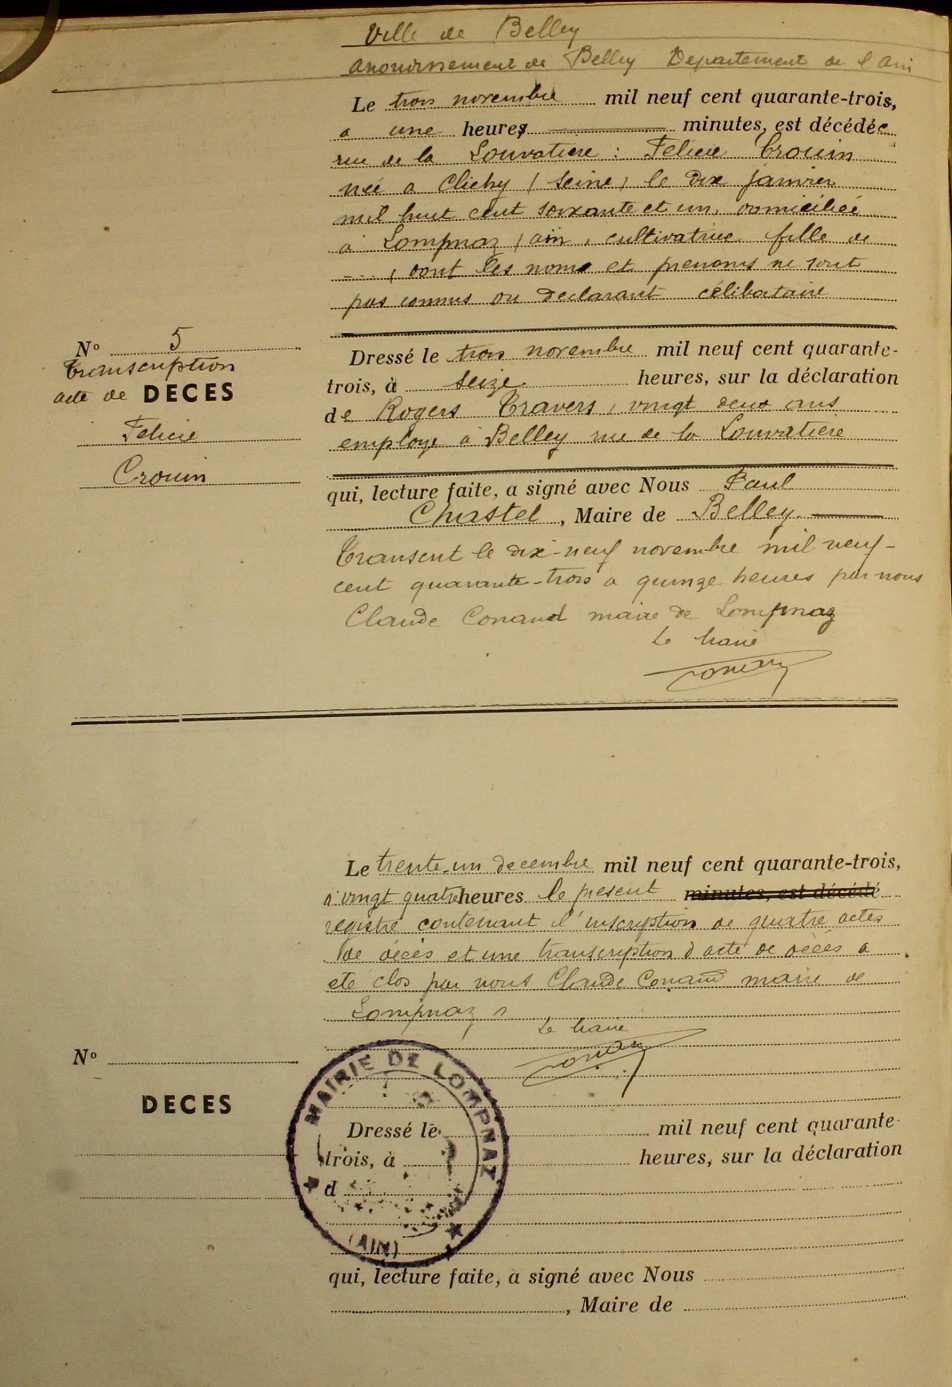 Ville de Belley
arrondissement de Belley Departement de l'Ain
Le trois novembre mil neuf cent quarante-trois,
a une heures minutes, est décédée
rue de la Louvatiere : Felicie Crouin
née a Clichy (Seine) le dix janvier
mil huit cent soixante et un, domiciliée
à Lompnaz (ain), cultivatrice fille de
..., dont les noms et prenoms ne sont
pas connus du declarant célibataire
N° 5
Transcription
acte de DECES
Felicie
Crouin
Dressé le trois novembre mil neuf cent quarante-
trois, à seize heures, sur la déclaration
de Rogers Travers, vingt deux ans
employe à Belley rue de la Louvatiere
qui, lecture faite, a signé avec Nous Paul
Chastel, Maire de Belley.
Transcrit le dix-neuf novembre mil neuf-
cent quarante-trois a quinze heures par nous
Claude Conand maire de Lompnaz
Le Maire
Conand
Le trente-un decembre mil neuf cent quarante-trois,
à vingt quatre heures le present minutes, est décédé
registre contenant l'inscription de quatre actes
de décès et une transcription d'acte de décès a
ete clos par nous Claude Conand maire de
Lompnaz
Le Maire
Conand
N°
DECES
MAIRIE DE LOMPNAZ
(AIN)
Dressé le mil neuf cent quarante-
trois, à heures, sur la déclaration
d
qui, lecture faite, a signé avec Nous
, Maire de